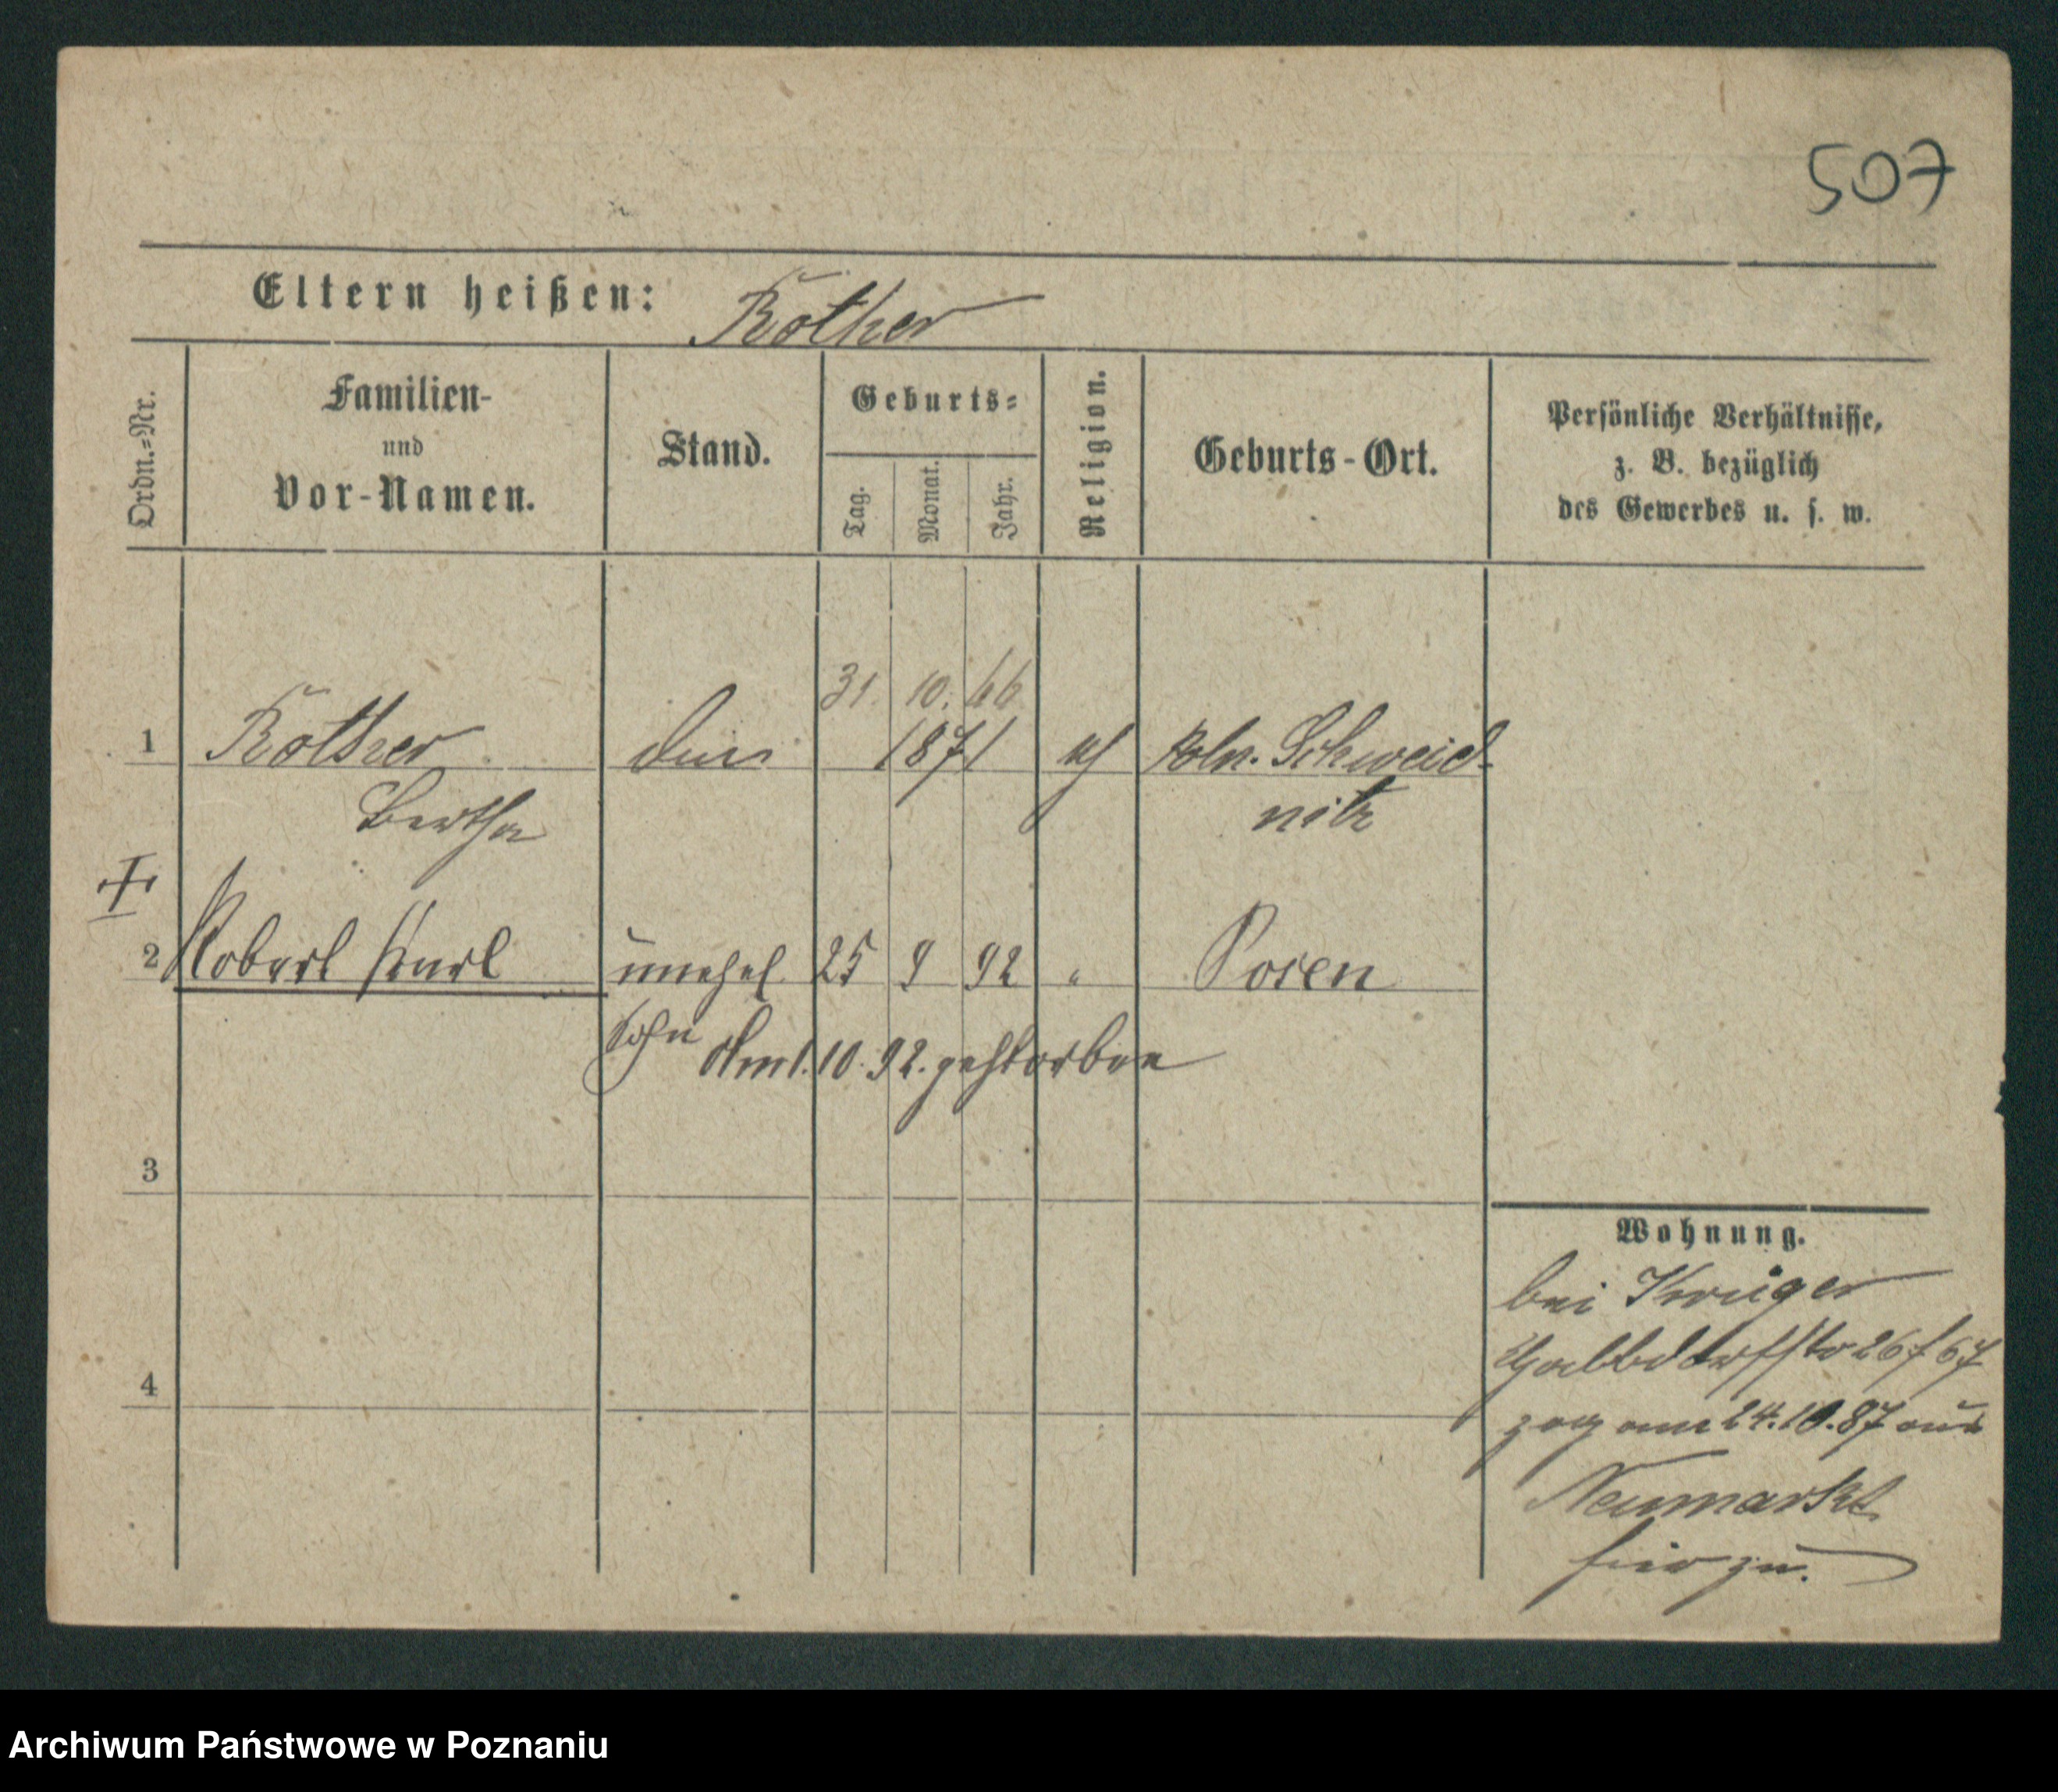 507
Eltern heißen: Rother
Ordn.=Nr.
Familien-
und
Vor-Namen.
Stand.
Geburts=
Tag.
Monat.
Jahr.
Religion.
Geburts-Ort.
Persönliche Verhältnisse,
z. B. bezüglich
des Gewerbes u. s. w.
31. 10. 66
1 Rother 1871 Poln. Schweid-
Bertha nitz
2 Robert Karl unehel. 25 9 92 " Posen
Sohn Am 1. 10. 92. gestorben
3
4
Wohnung.
bei Krüger
zog am 24.10.87 aus
Neumarkt
hier zu.
Archiwum Państwowe w Poznaniu